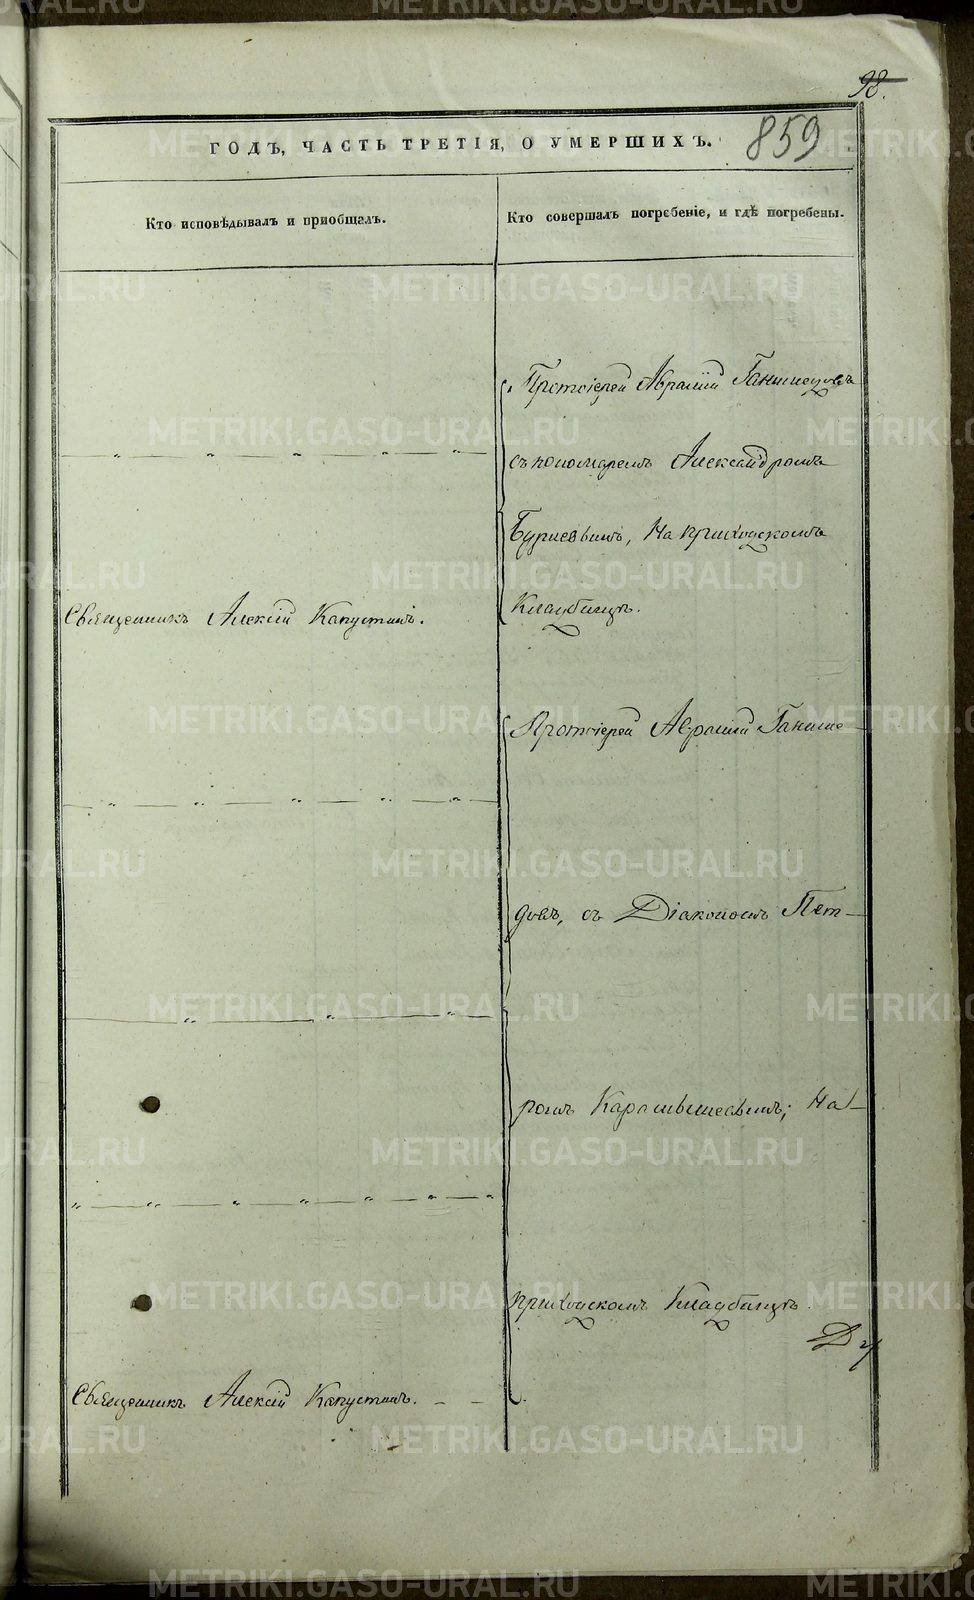 98.
859
ГОДЪ, ЧАСТЬ ТРЕТІЯ, О УМЕРШИХЪ.
Кто исповѣдывалъ и пріобщалъ.
Кто совершалъ погребеніе, и гдѣ погребены.
Протоіерей Авраамій
съ пономаремъ Александромъ
На приходскомъ
Кладбищѣ.
Священникъ Алексій Капустинъ.
Протоіерей Авраамій
съ Діакономъ Пет-
ромъ Карпышевымъ; На
приходскомъ Кладбищѣ.
Священникъ Алексій Капустинъ.
METRIKI.GASO-URAL.RU